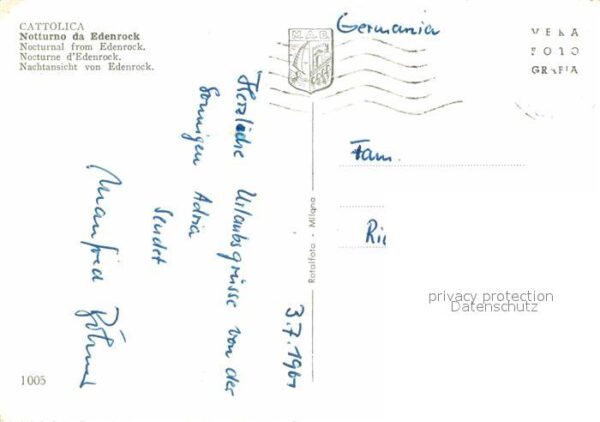 CATTOLICA
Notturno da Edenrock
Nocturnal from Edenrock.
Nocturne d'Edenrock.
Nachtansicht von Edenrock.
M.A.B.
Germania
VERA
FOTO
GRAFIA
Herzliche Urlaubsgrüsse von der
Sonnigen Adria
sendet
Manfred
3.7.1961
Rotalfoto - Milano
Fam.
Ri
privacy protection
Datenschutz
1005